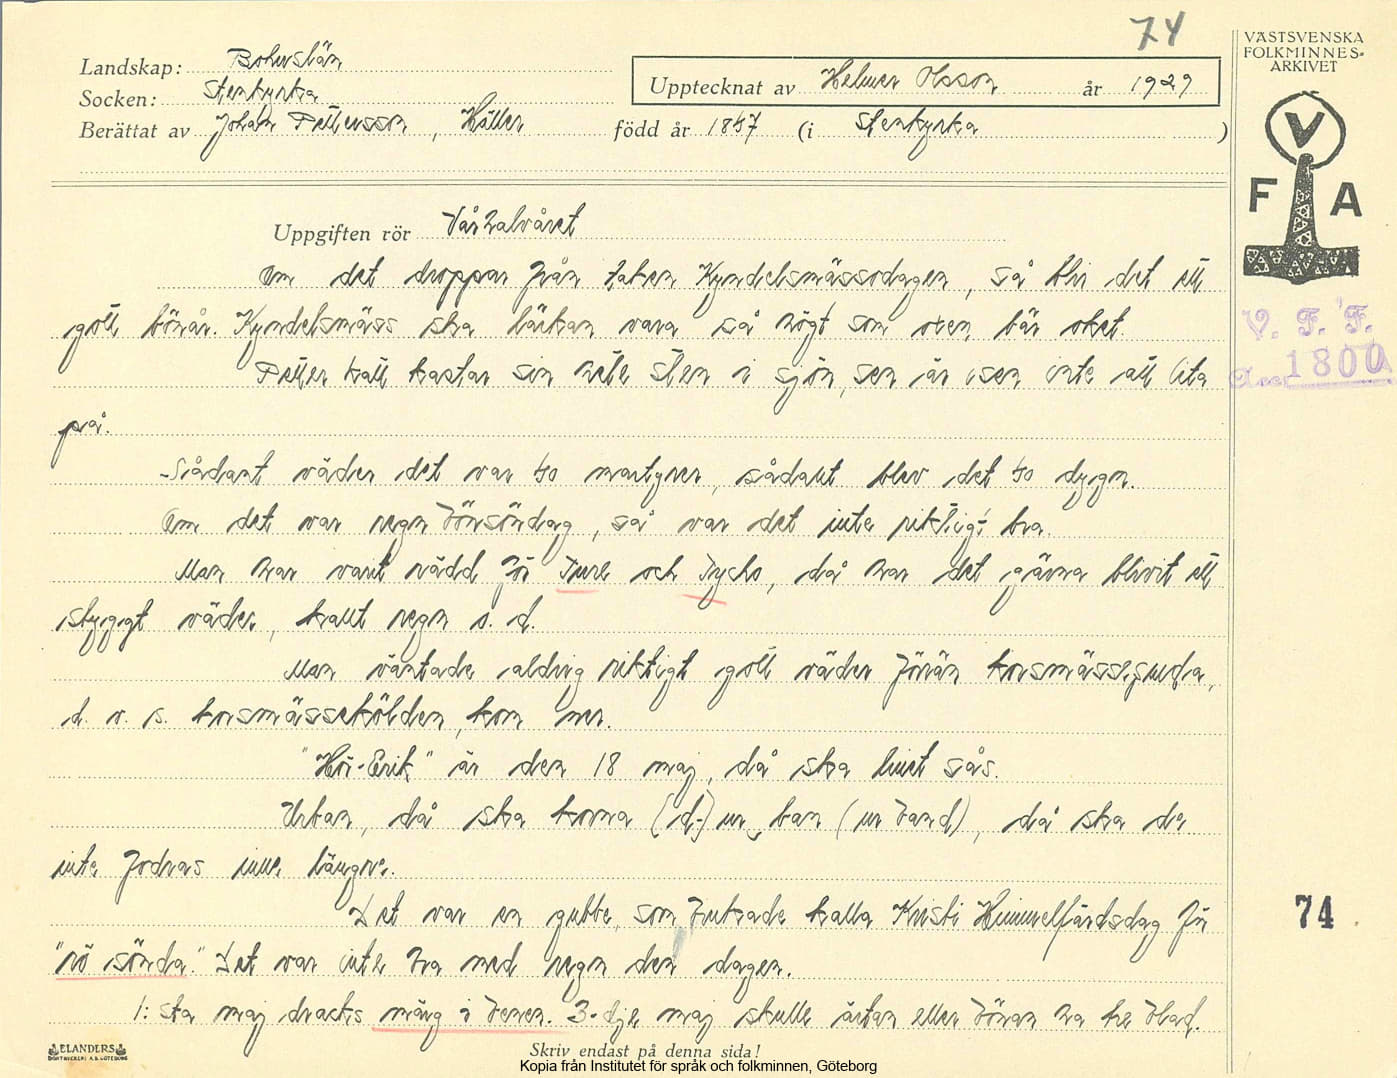 74
VÄSTSVENSKA
FOLKMINNES-
ARKIVET
Landskap: Bohuslän
Socken: Stenkyrka
Upptecknat av Helmer Olsson år 1929
Berättat av Johan Pettersson, Häller född år 1847 (i Stenkyrka)
V
F A
Uppgiften rör Vårhalvåret
Om det droppar från taken Kyndelsmässodagen, så blir det ett
gott bönår. Kyndelsmäss ska bäcken vara så högt som oxen bär oket.
V. F. F.
Acc. 1800
Petter katt kastar sin hete sten i sjön, sen är isen inte att lita
på.
Sådant väder det var 40 martyrer, sådant blev det 40 dygn.
Om det var regn Försöndag, så var det inte riktigt bra.
Man har varit rädd för Ture och Tycho, då har det gärna blivit ett
styggt väder, kallt regn o. d.
Man väntade aldrig riktigt gott väder förrän korsmässe
d. v. s. korsmässekölden, kom ner.
"Hör-Erik" är den 18 maj, då ska linet sås.
Urban, då ska korna (d-) ur ban (ur band), då ska de
inte fodras inne längre.
Det var en gubbe, som brukade kalla Kristi Himmelfärdsdag för
"rö sönda". Det var inte bra med regn den dagen.
74
1:sta maj dracks märg i benen. 3-dje maj skulle ärtan eller bönan ha tre blad.
ELANDERS
BOKTRYCKERI A.B. GÖTEBORG
Skriv endast på denna sida!
Kopia från Institutet för språk och folkminnen, Göteborg